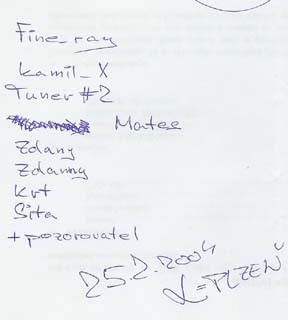 Fine_ray
Kamil_X
Tuner #2
Matee
Zdany
Zdanny
Krt
Sita
+pozorovatel
25.2.2004
L=PLZEŇ